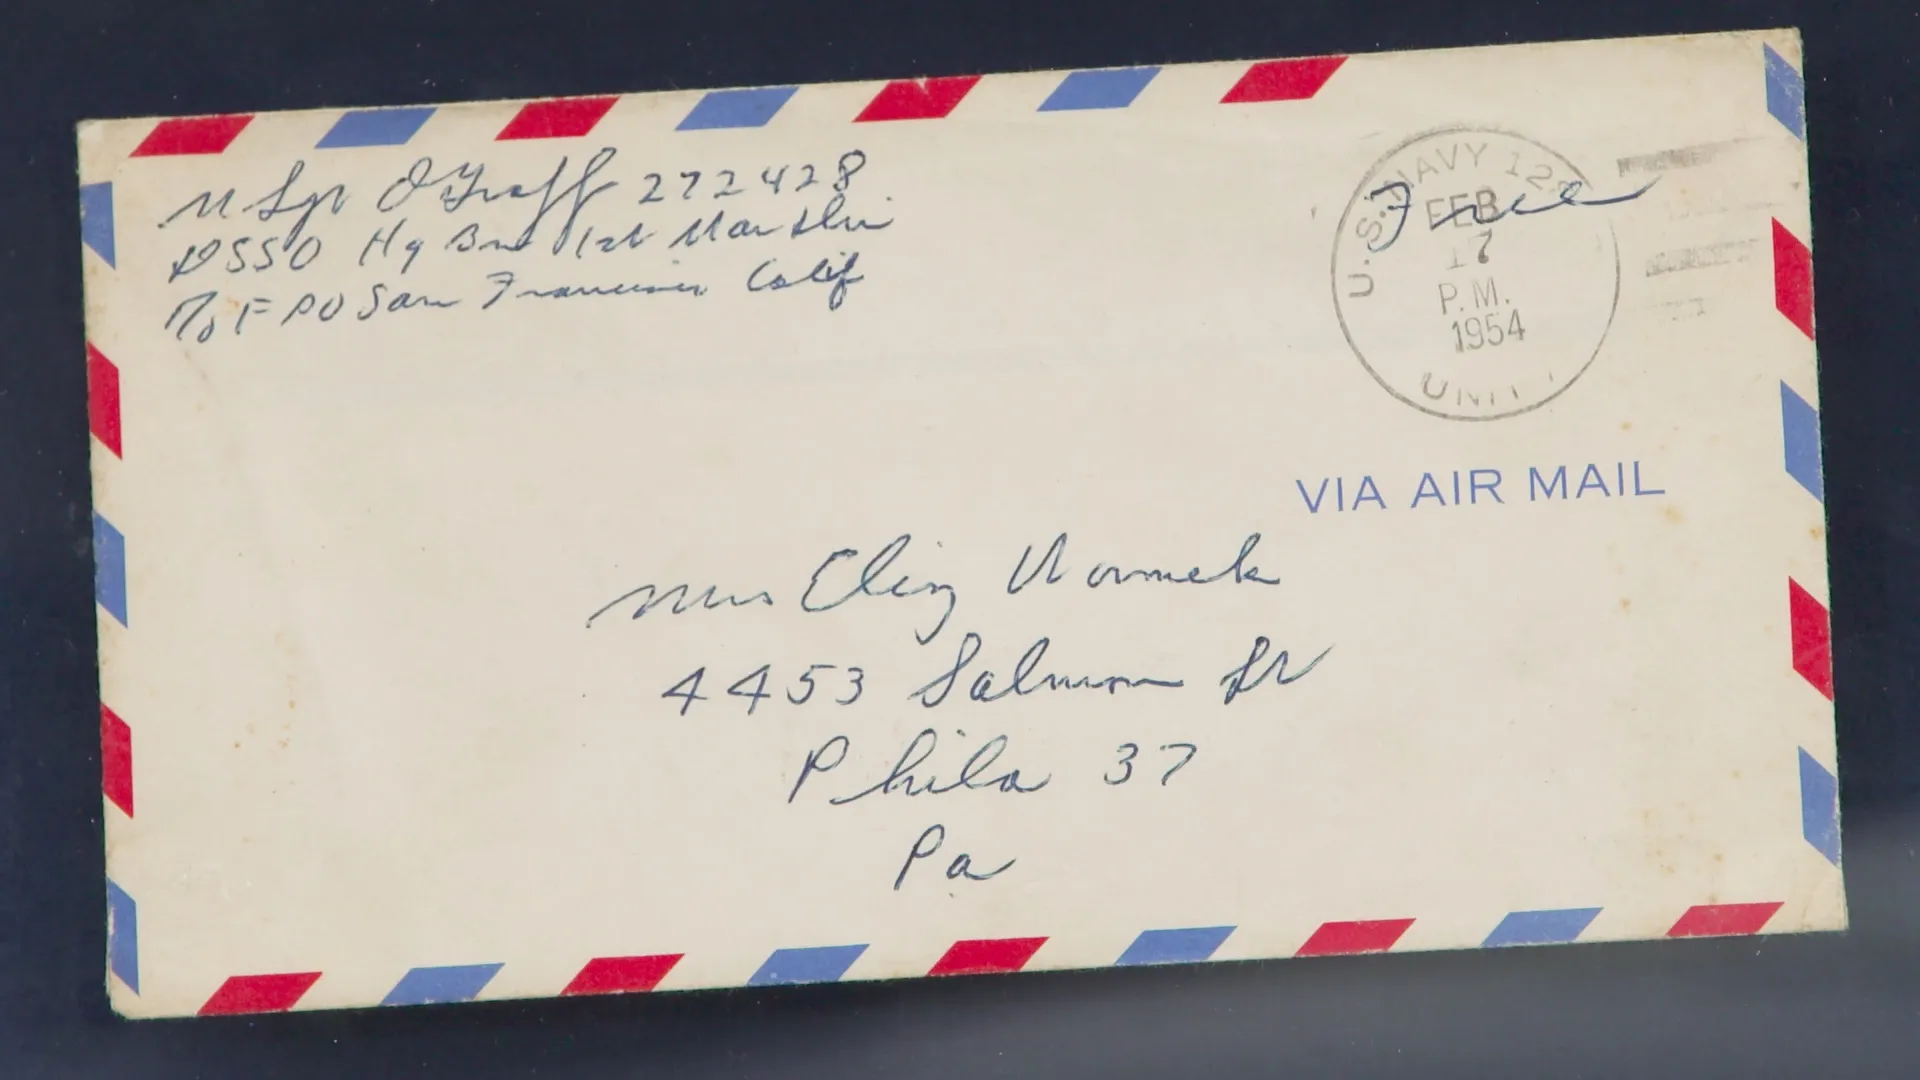 M Sgt O Graff 272428
DSSO Hq Bn 1st Mar Div
c/o FPO San Francisco Calif
Free
U.S. NAVY 12
FEB
17
P.M.
1954
UNIT
VIA AIR MAIL
Mrs Eliz
4453 Salmon St
Phila 37
Pa